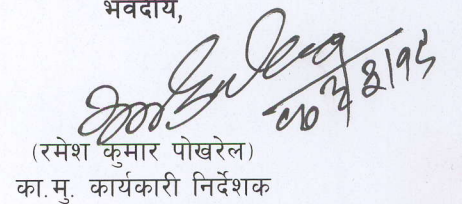 भवदीय,
(रमेश कुमार पोखरेल)
का.मु. कार्यकारी निर्देशक